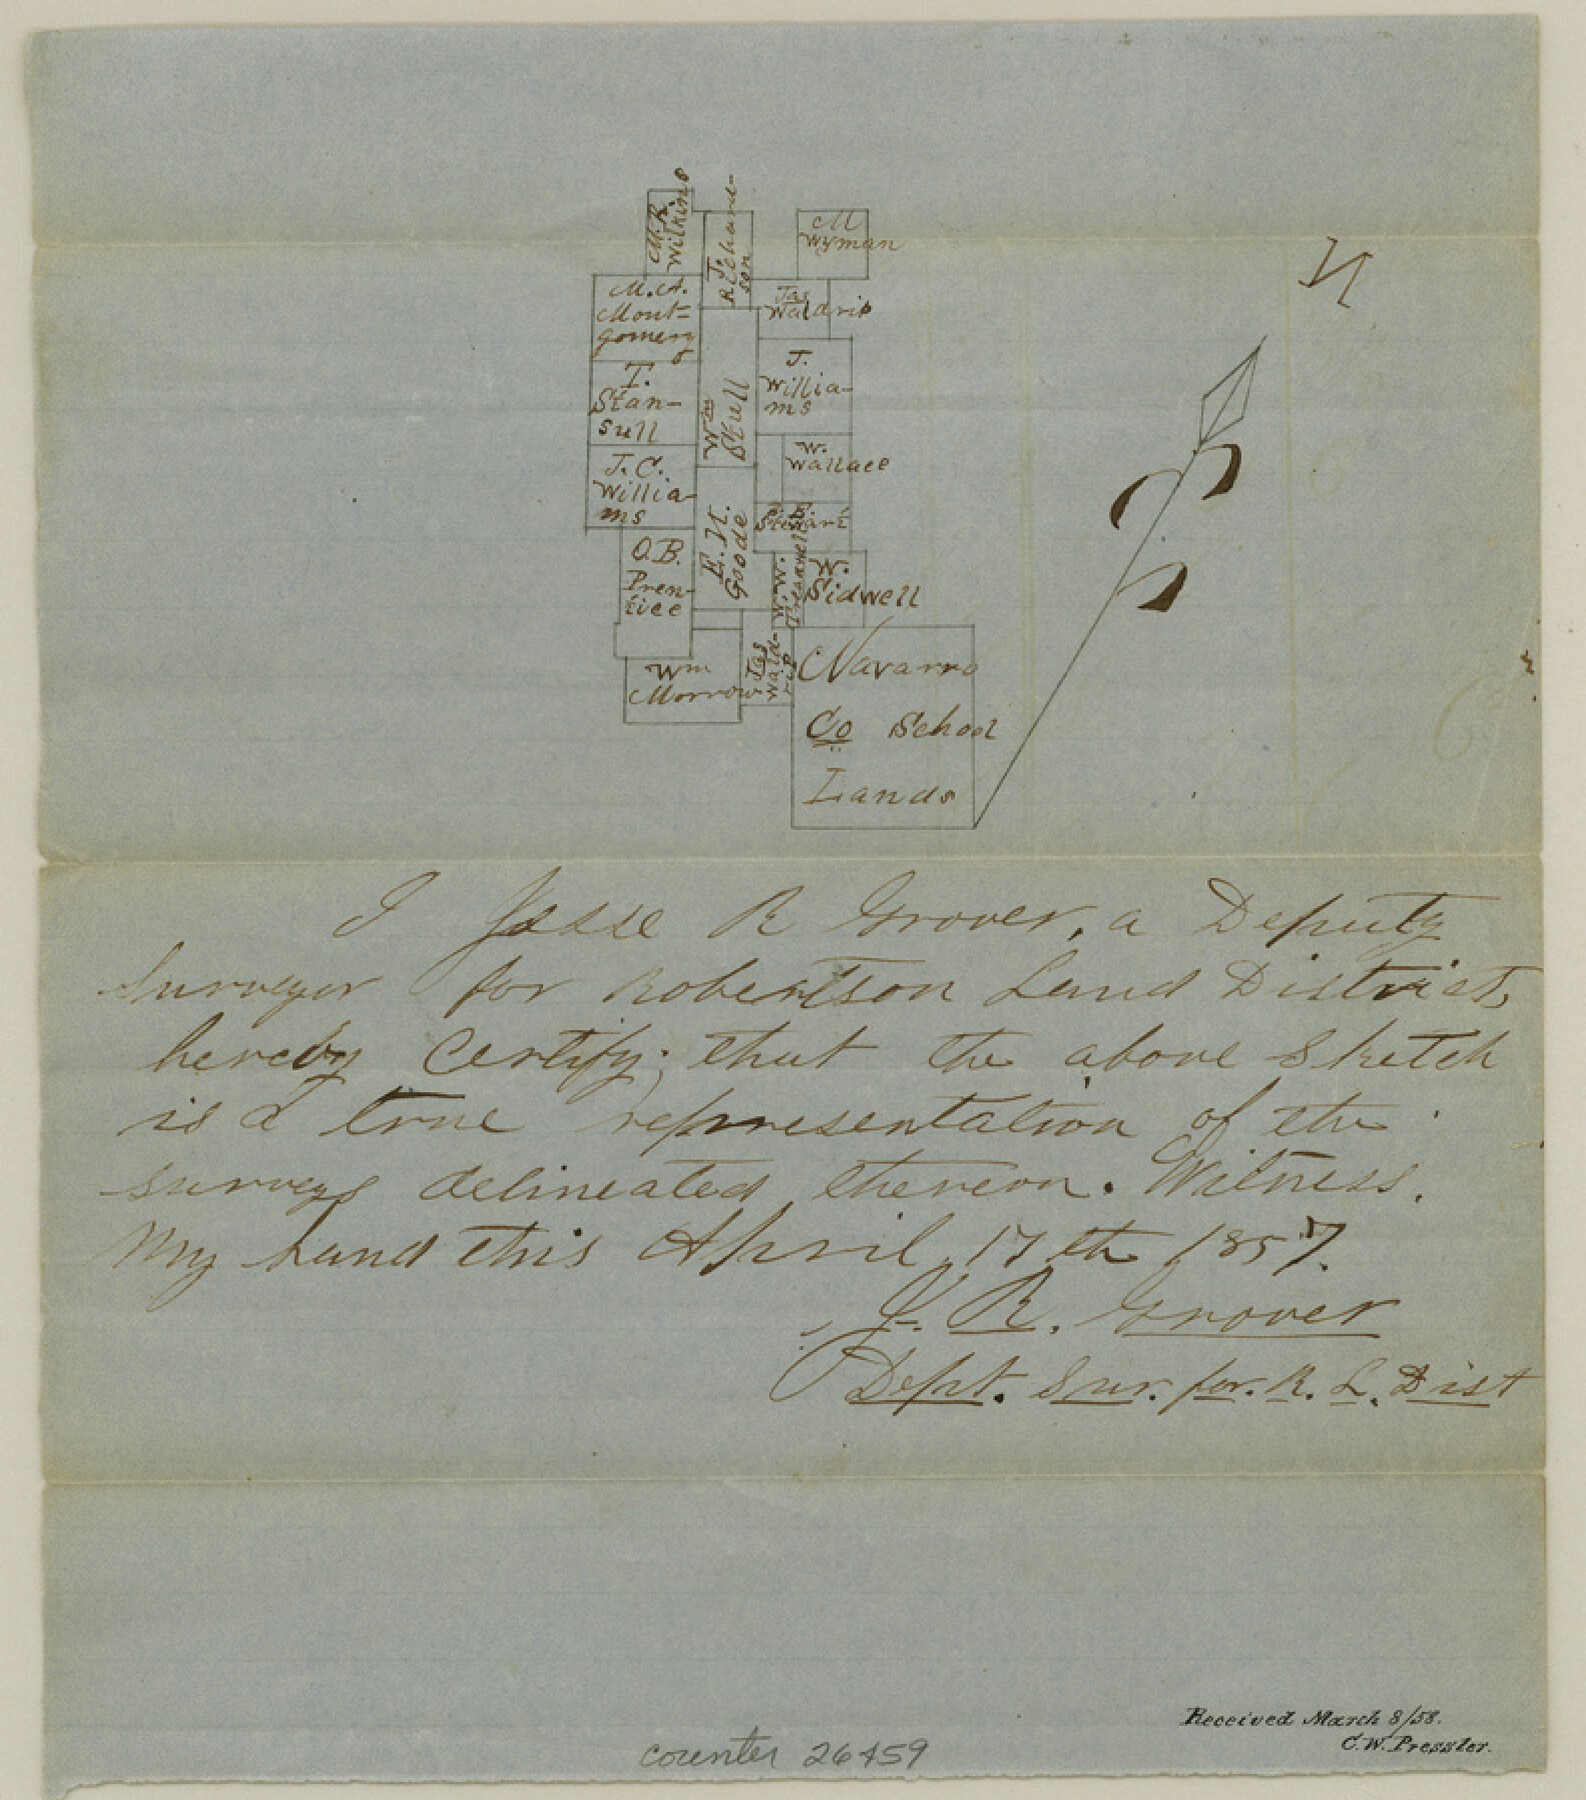 M. R.
Wilkins
J.
Richard-
son
M
Wyman
N
M. A.
Mont-
gomery
Jas
Waldrip
T.
Stan-
sull
Wm
Stull
J.
Willia-
ms
J. C.
Willia-
ms
W.
Wallace
E. H.
Goode
Stewart
O. B.
Pren-
tice
W. W.
W.
Sidwell
Wm
Morrow
Jas
Wald-
rip
Navarro
Co School
Lands
I Jesse R Grover, a Deputy
Surveyor for Robertson Land District,
hereby Certify; that the above Sketch
is a true representation of the
surveys delineated thereon. Witness.
My hand this April 17th 1857.
J. R. Grover
Dept. Sur. for. R. L. Dist
Received March 8/58.
C. W. Pressler.
counter 26459